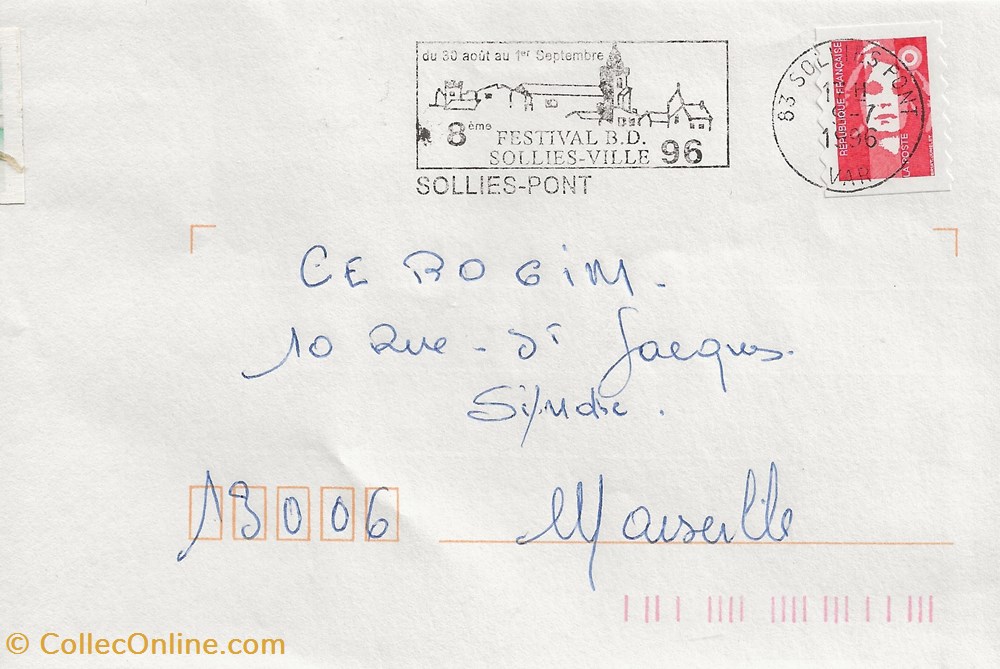 du 30 août au 1er Septembre
8ème FESTIVAL B.D.
SOLLIES-VILLE 96
SOLLIES-PONT
83 SOLLIES PONT
1996
VAR
REPUBLIQUE FRANÇAISE
LA POSTE
CEROGIM.
10 Rue - St Jacques.
Syndic.
13006 Marseille
© CollecOnline.com